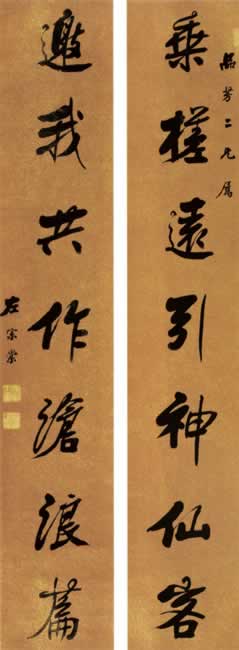 品芳二兄屬
乘槎遠引神仙客
邀我共作滄浪篇
左宗棠